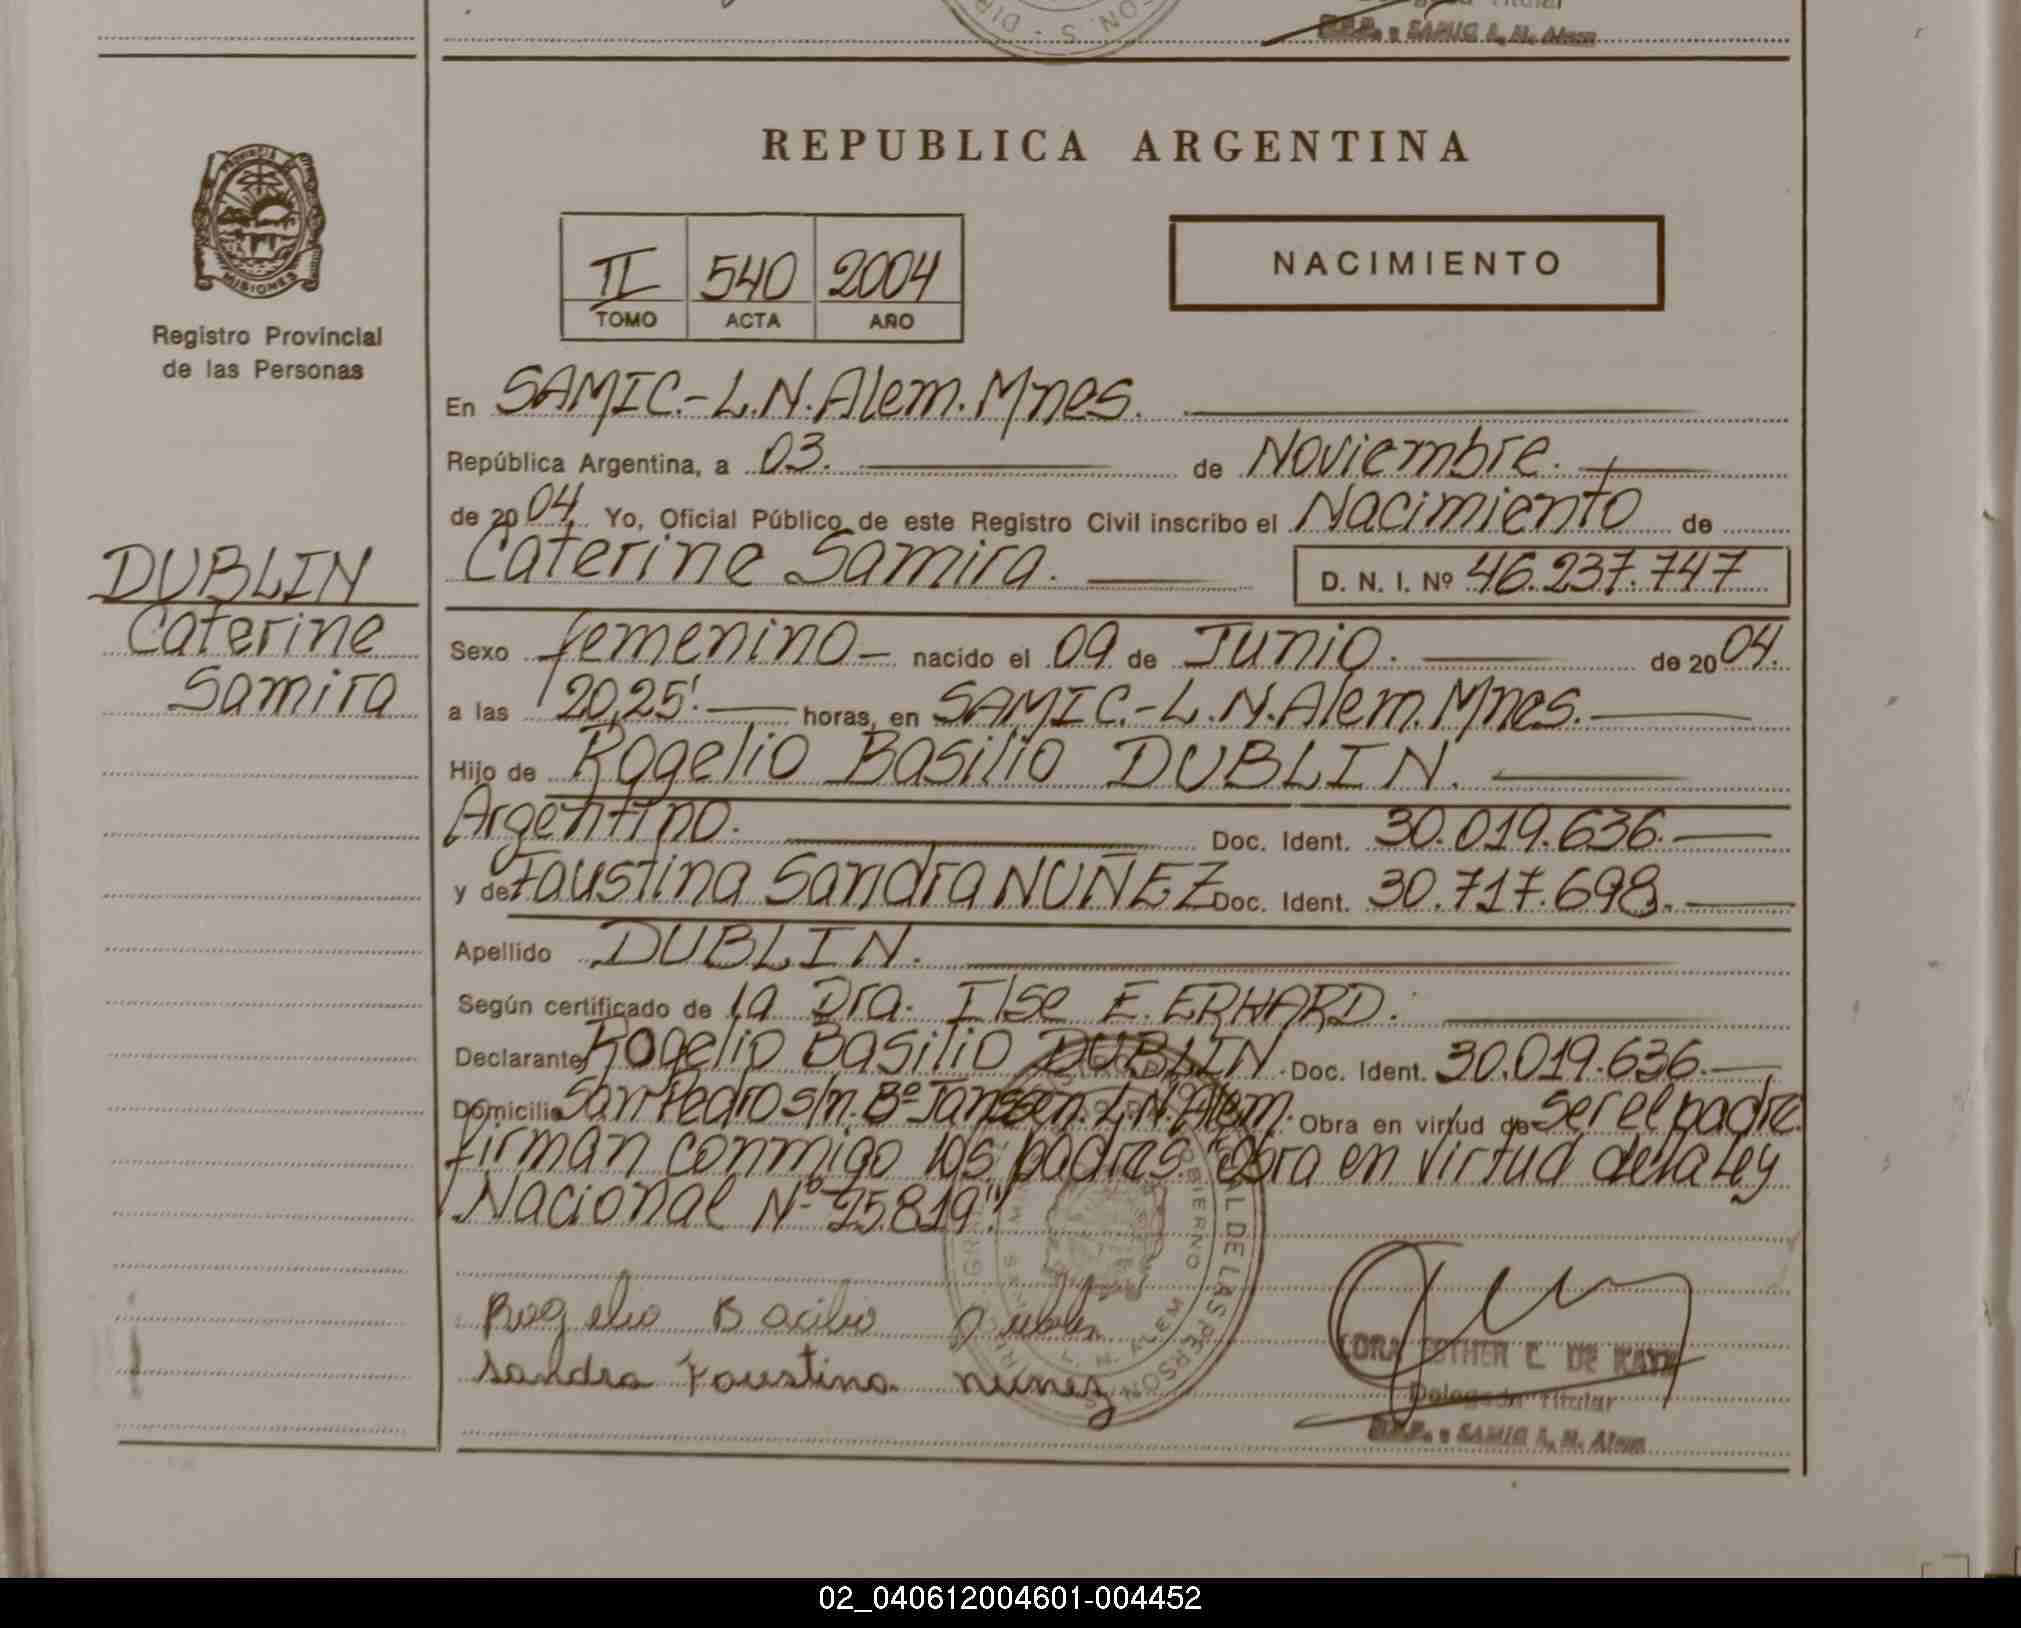 S. A. MIC L. N. Alem
REPUBLICA ARGENTINA
PROVINCIA
MISIONES
Registro Provincial
de las Personas
II 540 2004
TOMO ACTA AÑO
NACIMIENTO
En SAMIC.-L.N.Alem.Mnes.
República Argentina, a 03. de Noviembre.
de 2004. Yo, Oficial Público de este Registro Civil inscribo el Nacimiento de
Caterine Samira. D. N. I. Nº 46.237.747
DUBLIN
Caterine
Samira
Sexo femenino nacido el 09 de Junio. de 2004.
a las 20,25'. horas, en SAMIC.-L.N.Alem.Mnes.
Hijo de Rogelio Basilio DUBLIN.
Argentino. Doc. Ident. 30.019.636.
y de Faustina Sandra NUÑEZ Doc. Ident. 30.717.698.
Apellido DUBLIN.
Según certificado de la Dra. Ilse E. ERHARD.
Declarante Rogelio Basilio DUBLIN. Doc. Ident. 30.019.636.
Domicilio San Pedro s/n. Bº Janssen. L.N.Alem. Obra en virtud de ser el padre.
firman conmigo los padres. "Obra en virtud de la Ley
Nacional Nº 25.819".
Rogelio Bacilio Dublin
Sandra Faustina nunez
ESTHER C. DE
Delegada Titular
SAMIC L. N. Alem
02_040612004601-004452